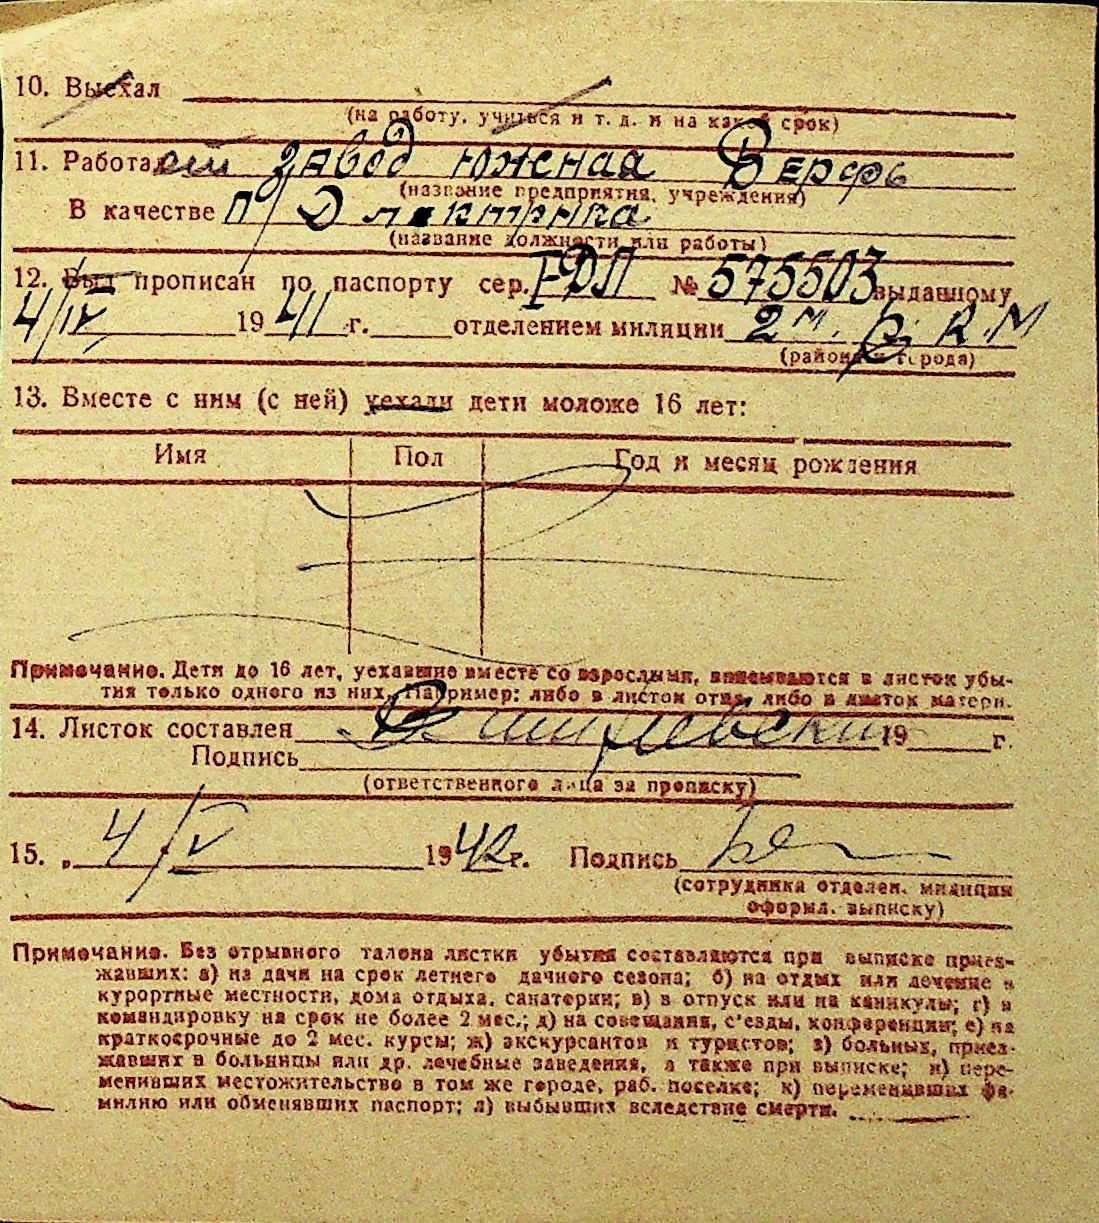 10. Выехал
(на работу, учиться и т. д. и на какой срок)
11. Работает завод Южная Верфь
(название предприятия, учреждения)
В качестве П/Электрика
(название должности или работы)
12. Был прописан по паспорту сер. РФЛ № 575503 выданному
4/IV 1941 г. отделением милиции 2 м. Р.К.М
(района и города)
13. Вместе с ним (с ней) уехали дети моложе 16 лет:
Имя Пол Год и месяц рождения
Примечание. Дети до 16 лет, уехавшие вместе со взрослыми, вписываются в листок убы-
тия только одного из них. Например: либо в листок отца, либо в листок матери.
14. Листок составлен 19 г.
Подпись
(ответственного лица за прописку)
15. „ 4/V 1942 г. Подпись
(сотрудника отделен. милиции
оформл. выписку)
Примечание. Без отрывного талона листки убытия составляются при выписке приез-
жавших: а) на дачи на срок летнего дачного сезона; б) на отдых или лечение в
курортные местности, дома отдыха, санатории; в) в отпуск или на каникулы; г) в
командировку на срок не более 2 мес.; д) на совещания, с'езды, конференции; е) на
краткосрочные до 2 мес. курсы; ж) экскурсантов и туристов; з) больных, приез-
жавших в больницы или др. лечебные заведения, а также при выписке; и) пере-
менивших местожительство в том же городе, раб. поселке; к) переменивших фа-
милию или обменявших паспорт; л) выбывших вследствие смерти.